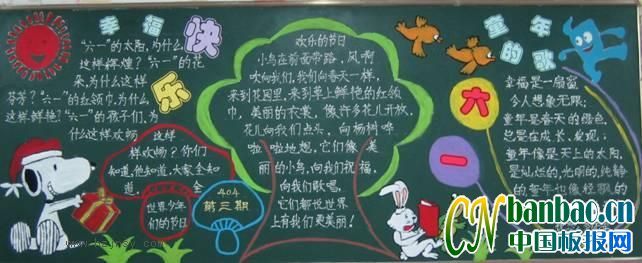 幸福
快
乐
"六一"的太阳,为什么
这样辉煌?"六一"的花
朵,为什么这样
芬芳?"六一"的红领巾,为什么
这样鲜艳?"六一"的孩子们,为
什么这样欢畅
这样
样欢畅?你们
知道,他知道,大家全知
道。 全
世界少年
们的节日
404
第三期
欢乐的节日
小鸟在前面带路,风啊
吹向我们,我们向春天一样,
来到花园里,来到草上鲜艳的红领
巾,美丽的衣裳,像许多花儿开放,
花儿向我们点头,向杨树哗
啦啦地想,它们像美
丽的小鸟,向我们祝福,
向我们歌唱,
它们都说世界
上有我们更美丽!
童年
的歌
六
一
幸福是一扇蜜
令人想象无限;
童年是春天的绿色,
总是在成长、发现;
童年像是天上的太阳,
是灿烂的,光明的,纯静
的
CNbanbao.cn
中国板报网